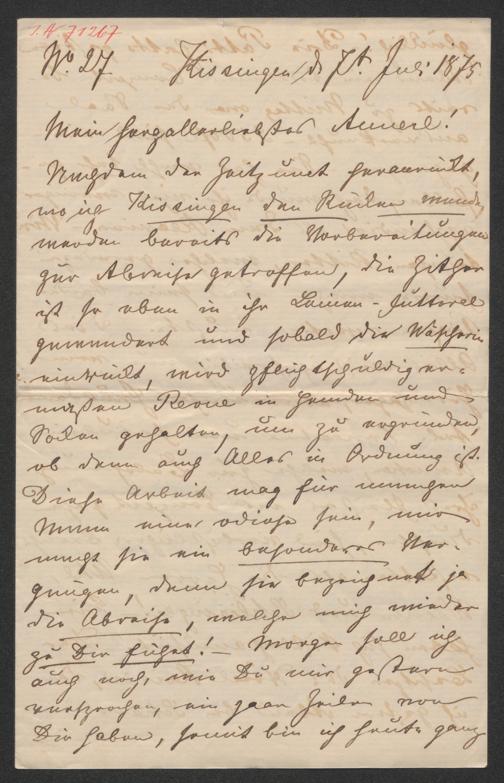 I.N. 71267
No. 27 Kissingen, d. 7t. Juli 1875
Mein herzallerliebstes Annerl!
Nachdem der Zeitpunct heranrückt,
wo ich Kissingen den Rücken wende,
werden bereits die Vorbereitungen
zur Abreise getroffen, die Zither
ist so eben in ihr Leinen-Futteral
gewandert und sobald die Wäscherin
einrückt, wird pflichtschuldiger-
maßen Revue in Hemden und
Socken gehalten, um zu ergründen,
ob denn auch Alles in Ordnung ist.
Diese Arbeit mag für manchen
Mann eine odiose sein, mir
macht sie ein besonderes Ver-
gnügen, denn sie bezeichnet ja
die Abreise, welche mich wieder
zu Dir führt! – Morgen soll ich
auch noch, wie Du mir gestern
versprochen, ein paar Zeilen von
Dir haben, somit bin ich heute ganz